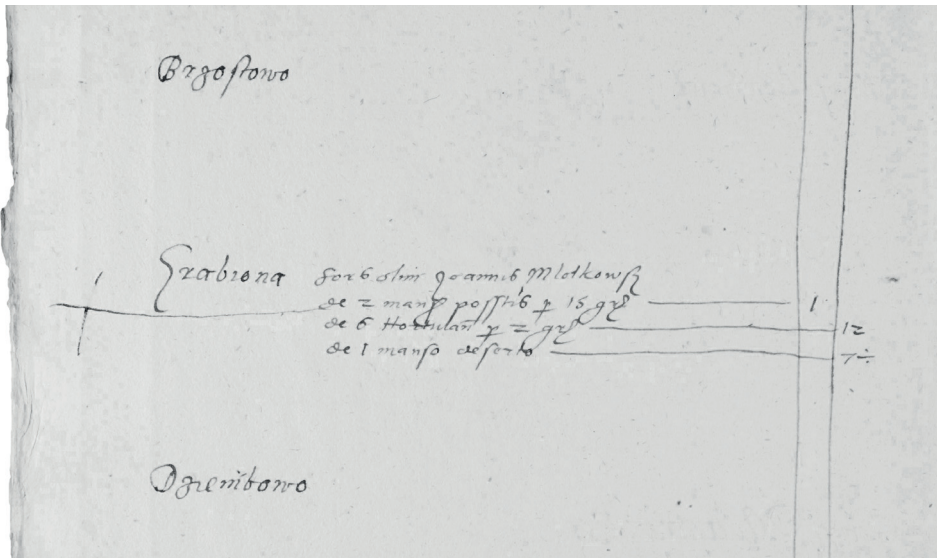 Brzostowo
1 Grabiona sors olim Joannis Mlotkowsk
de 2 mans possess p 15 gr 1
de 6 Hortulan p 2 gr 12
de 1 manso deserto 7 ÷
Dziembowo